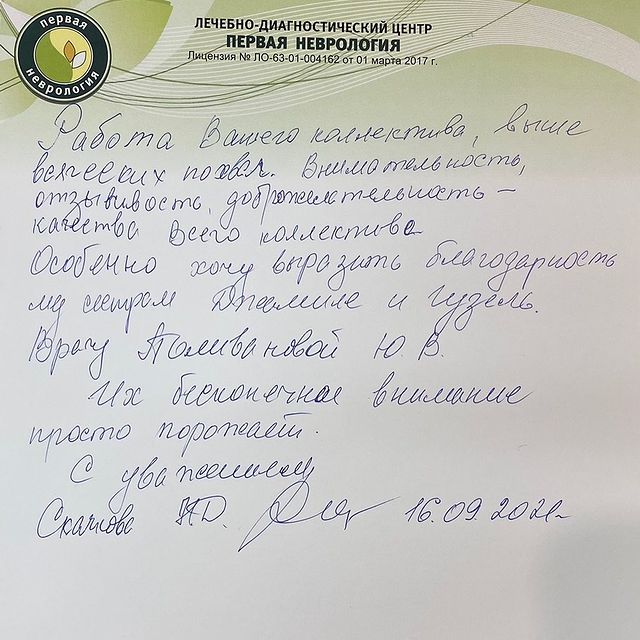 первая
неврология
ЛЕЧЕБНО-ДИАГНОСТИЧЕСКИЙ ЦЕНТР
ПЕРВАЯ НЕВРОЛОГИЯ
Лицензия № ЛО-63-01-004162 от 01 марта 2017 г.
Работа Вашего коллектива, выше
всяческих похвал. Внимательность,
отзывивость, доброжелательность –
качества всего коллектива
Особенно хочу выразить благодарность
мед сестрам Джамиле и Гузель.
Врачу Поливановой Ю. В.
Их бесконечное внимание
просто поражает.
С уважением
Скачкова Н.Д. 16.09.2021г